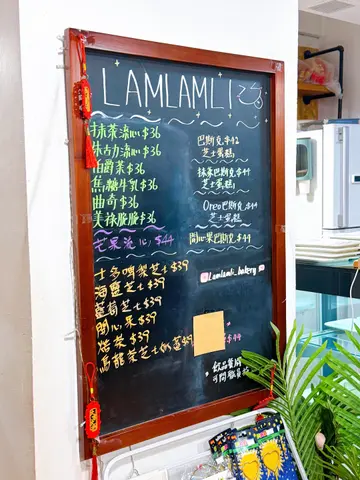 LAMLAMLI
抹茶流心$36
朱古力流心$36
伯爵茶$36
焦糖牛乳$36
曲奇$36
$36
芒果流心$44
士多啤梨芝士$39
海鹽芝士$39
藍莓芝士$39
開心果$39
焙茶$39
烏龍茶芝士
$44
巴斯克$42
芝士蛋糕
抹茶巴斯克$44
芝士蛋糕
Oreo巴斯克$44
芝士蛋糕
開心果巴斯克$44
Lamlamli_bakery